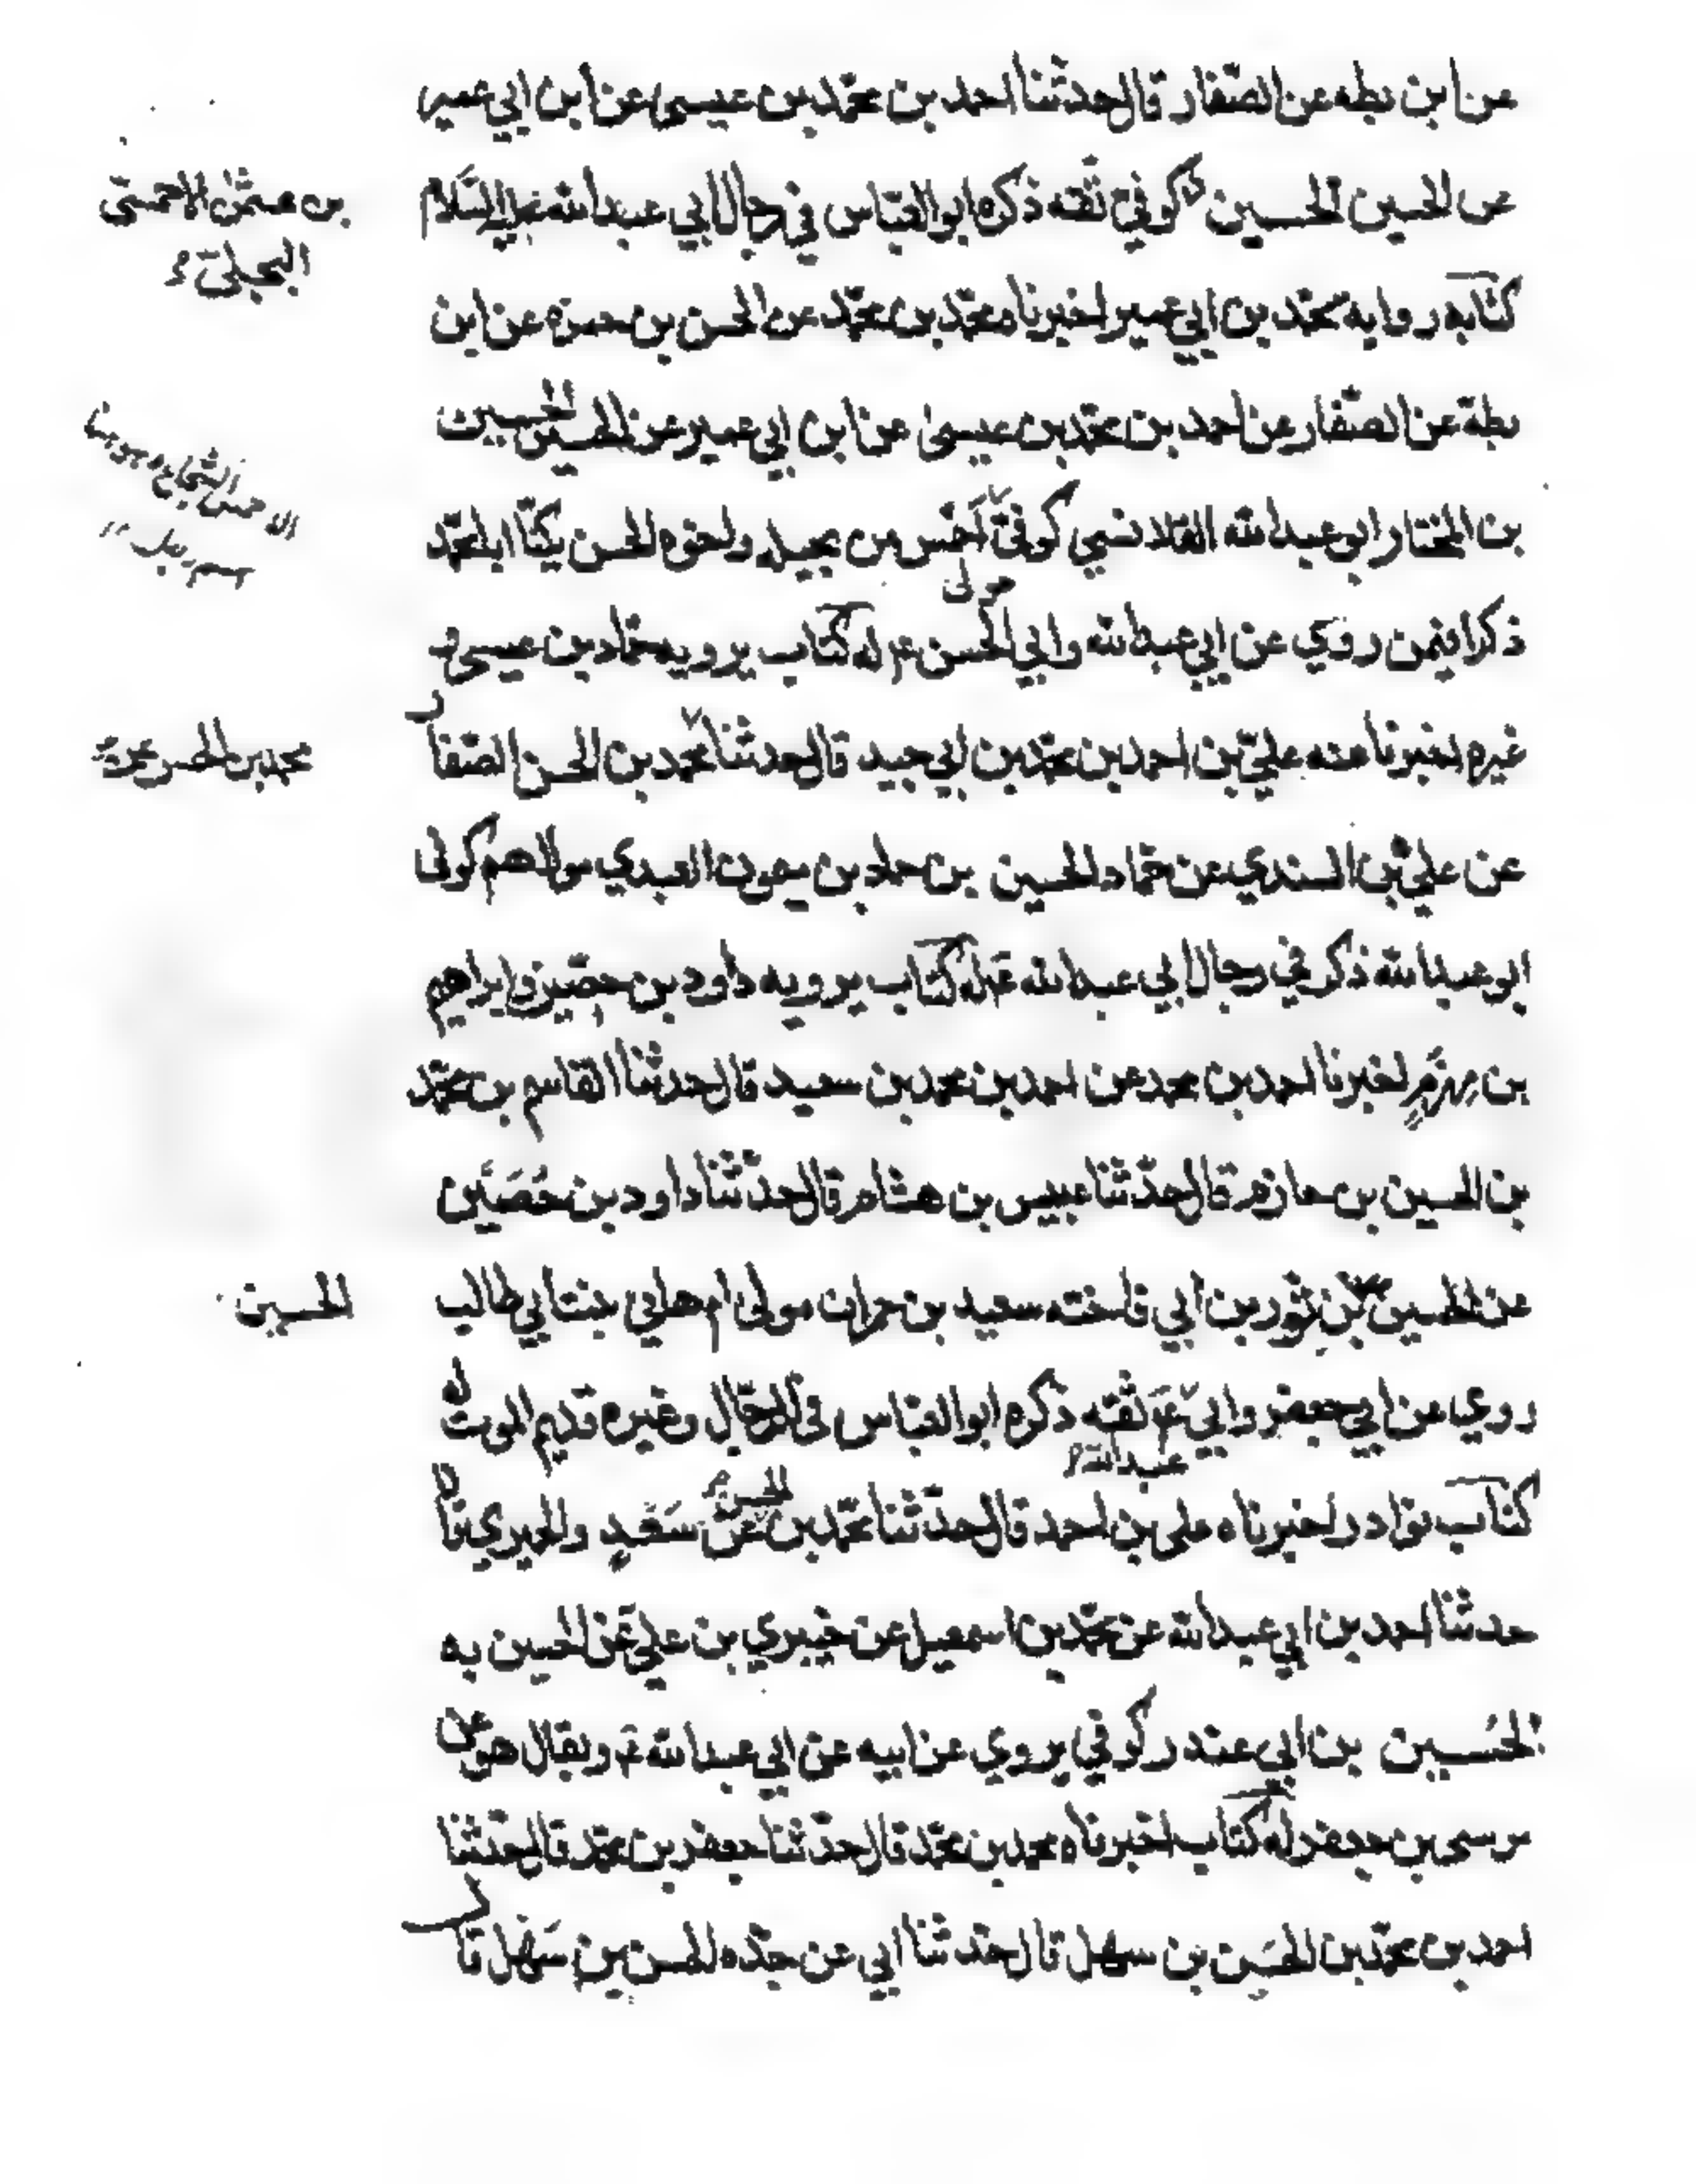 عن ابن بطه عن الصفار قال حدثنا احمد بن محمّد بن عيسى عن ابن ابي عمير
عن الحسين الحسين كوفي ثقه ذكره ابو العبّاس في رجال ابي عبدالله عليه السّلام
بن عثمن الاحمسّي
البجليّ
كتابه رواية محمّد بن ابي عمير اخبرناه محمّد بن محمّد عن الحسن بن حمزه عن ابن
بطة عن الصفّار عن احمد بن محمّد بن عيسى عن ابن ابي عمير عن الحسين الحسين
بن المختار ابو عبدالله القلانسي كوفيّ احمس من بجيله واخوه الحسن يكنّا ابا محمّد
مولى
ذكرا فيمن روي عن ابي عبدالله وابي الحسن ع له كتاب يرويه حمّاد بن عيسى و
غيره اخبرنا عنه عليّ بن احمد بن محمّد بن ابي جيد قال حدثنا محمد بن الحسن الصفار
محمد بن الحسن عن
عن علي بن السندي عن حمّاد الحسين بن حماد بن ميمون العبدي مولاهم كوفى
ابو عبدالله ذكر في رجال ابي عبدالله ع له كتاب يرويه داود بن حصين وابراهيم
بن مهزم اخبرنا احمد بن محمد عن احمد بن محمد بن سعيد قال حدثنا القاسم بن محمّد
بن الحسين بن حازم قال حدّثنا عبيس بن هشام قال حدّثنا داود بن حُصَيَن
عن الحسين بن ثوير بن ابي فاخته سعيد بن حمران مولى ام هاني بنت ابي طالب
الحسين
روي عن ابي جعفر وابي ع ثقه ذكره ابو العبّاس فى الرّجال وغيره قديم الموت له
عبدالله
كتاب نوادر اخبرناه على بن احمد قال حدّثنا محمّد بن عن سَعْدٍ والحميري قالا
الحسن
حدثنا احمد بن ابي عبدالله عن محمّد بن اسمعيل عن خيبري بن علي عن الحسين به
الحُسين بن ابي عندر كوفي يروي عن ابيه عن ابي عبدالله ع ويقال هو عن
موسى بن جعفر له كتاب اخبرناه محمد بن محمّد قال حدّثنا جعفر بن محمّد قال حدّثنا
احمد بن محمّد بن الحسَين بن سهل قال حدّثنا ابي عن جدّه الحسن بن سَهْل قال